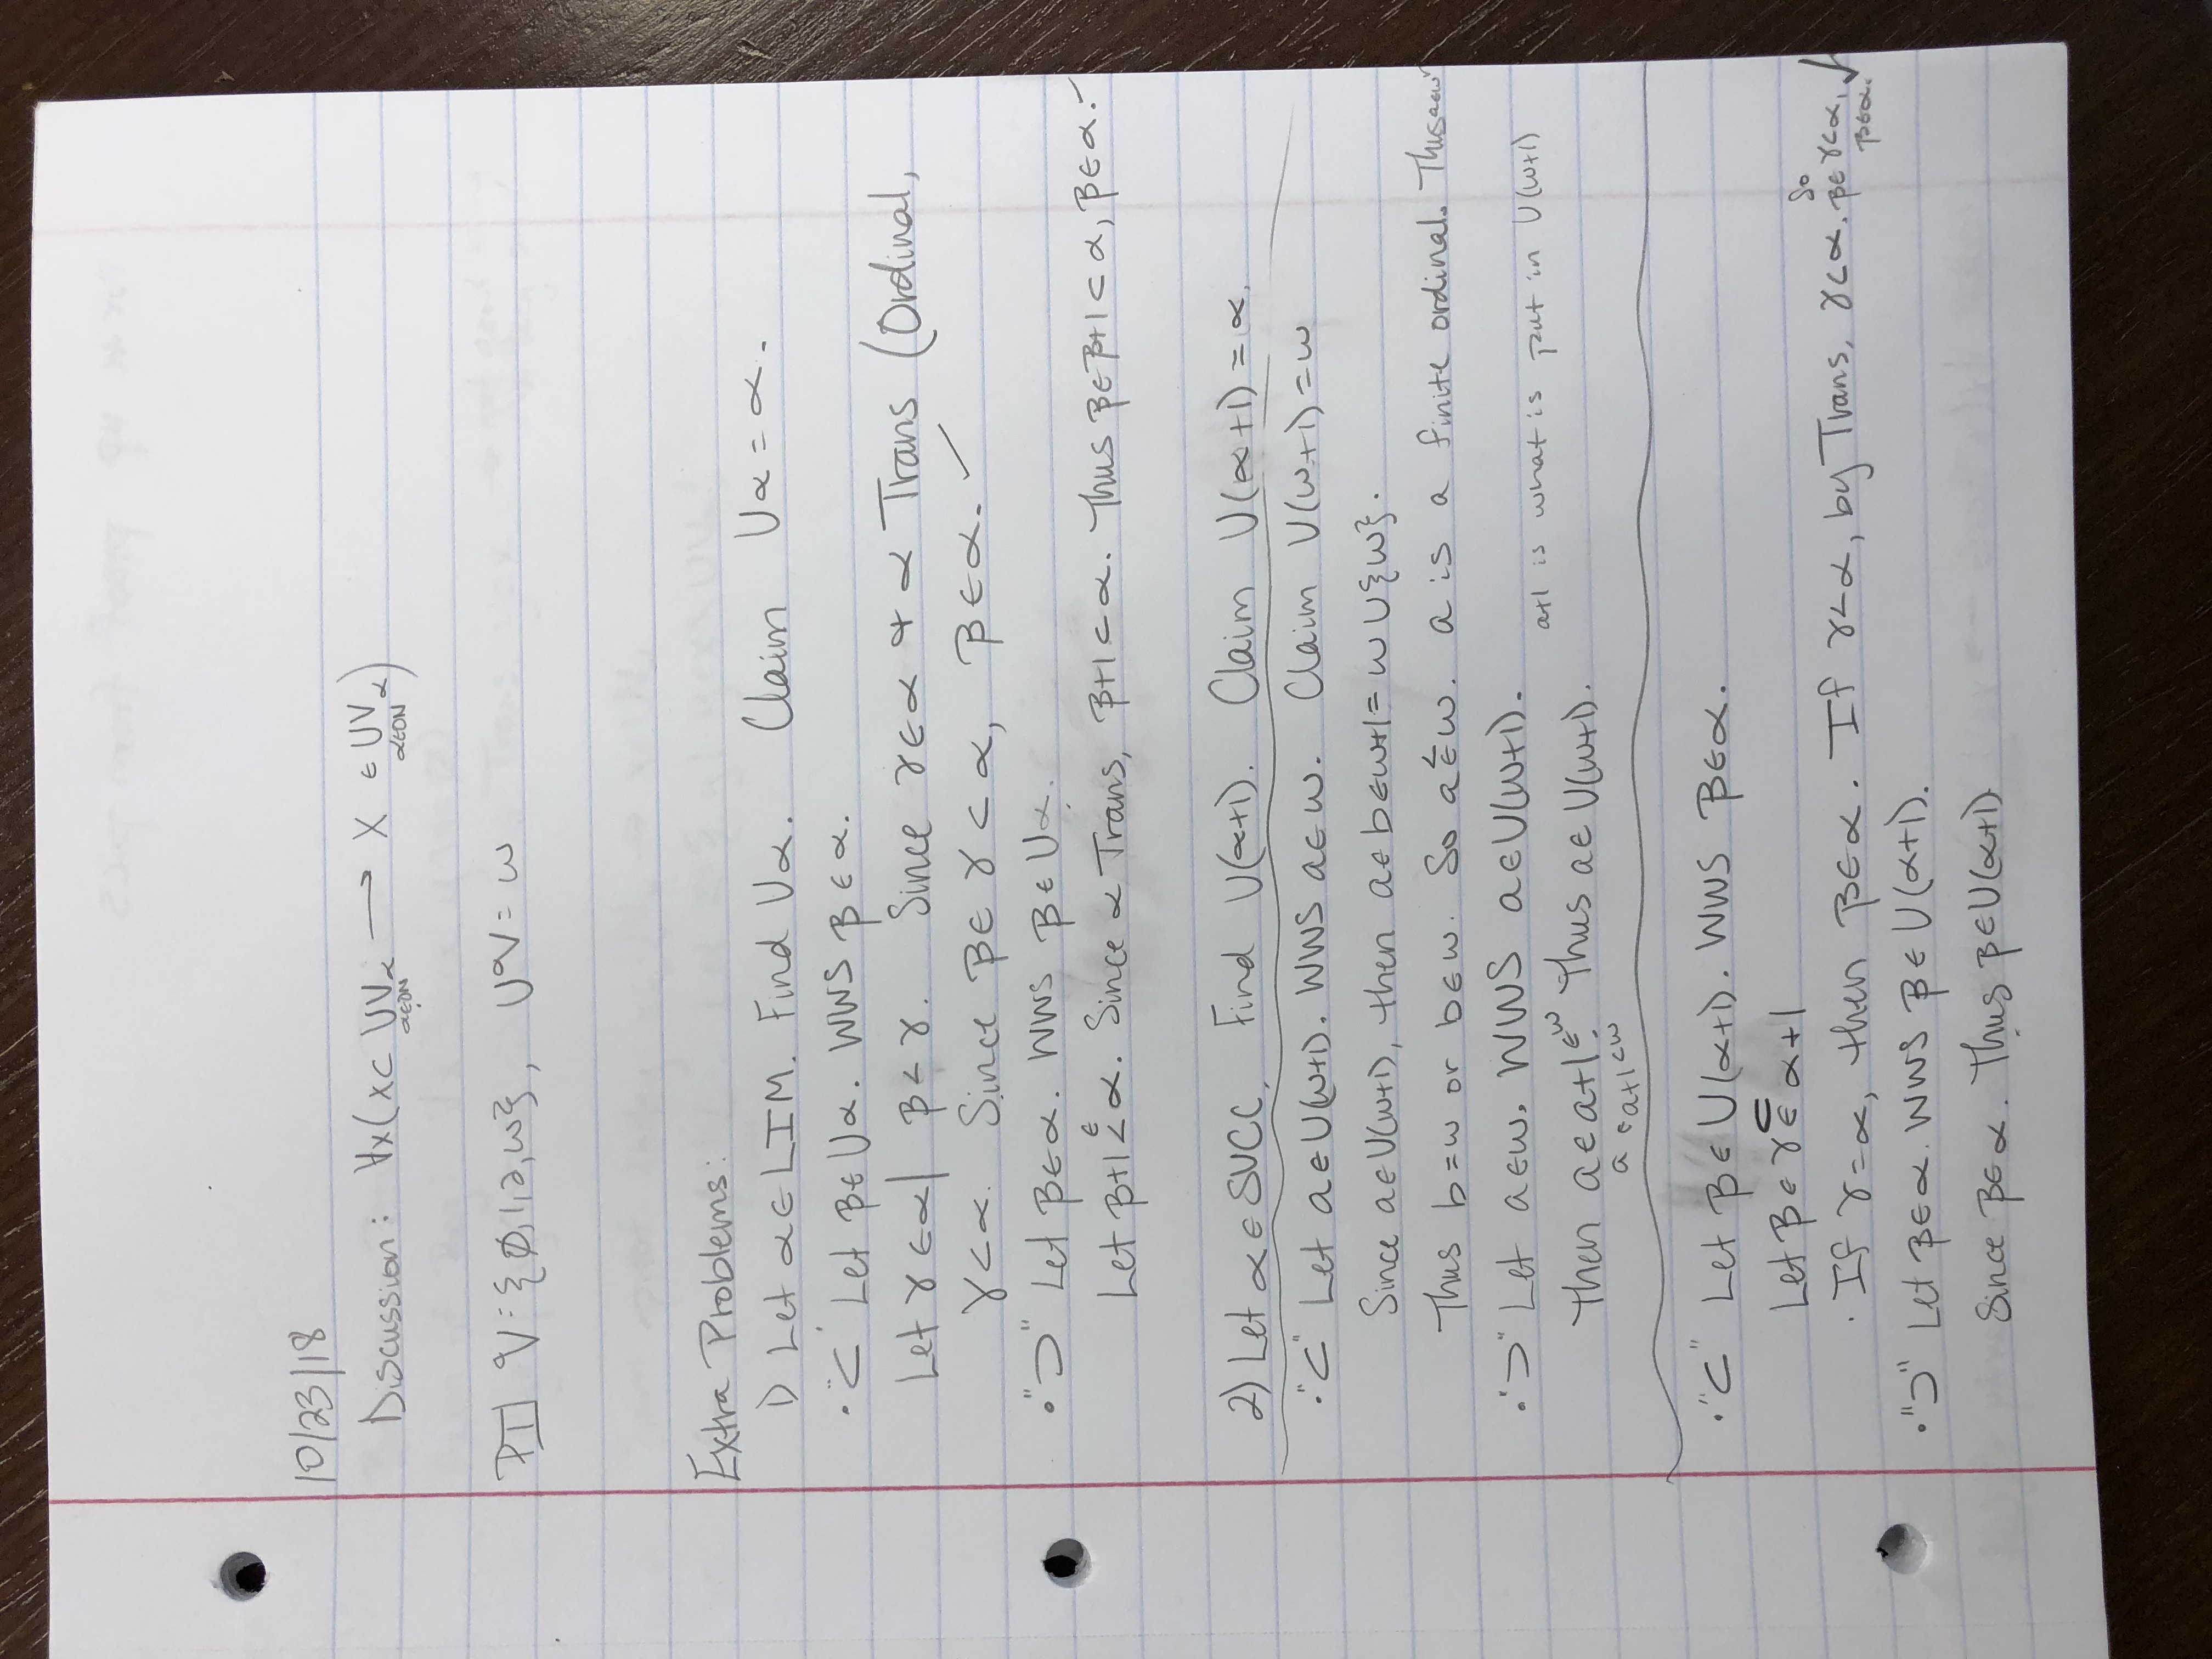 10/23/18
Discussion: ∀x(x⊂ ∪V_α → X ∈ ∪V_α)
α∈ON α∈ON
PII V={∅,1,2,ω}, ∪V=ω
Extra Problems:
1) Let α∈LIM. Find ∪α. Claim ∪α=α.
• "⊂" Let β∈∪α. WWS β∈α.
Let γ∈α| β<γ. Since γ∈α + α Trans (Ordinal,
γ⊂α. Since β∈γ⊂α, β∈α. ✓
• "⊃" Let β∈α. WWS β∈∪α.
∈
Let β+1<α. Since α Trans, β+1⊂α. Thus β∈β+1⊂α, β∈α. ✓
2) Let α∈SUCC. Find ∪(α+1). Claim ∪(α+1)=α.
• "⊂" Let a∈∪(ω+1). WWS a∈ω. Claim ∪(ω+1)=ω
Since a∈∪(ω+1), then a∈b∈ω+1=ω∪{ω}.
Thus b=ω or b∈ω. So a≤∈ω. a is a finite ordinal. Thus a∈ω
• "⊃" Let a∈ω. WWS a∈∪(ω+1).
a+1 is what is put in ∪(ω+1)
Then a∈a+1∈ω. Thus a∈∪(ω+1).
a∈a+1⊂ω
• "⊂" Let β∈∪(α+1). WWS β∈α.
⊂
Let β∈γ∈α+1
• If γ=α, then β∈α. If γ<α, by Trans, γ⊂α. So β∈γ⊂α, β∈α. ✓
• "⊃" Let β∈α. WWS β∈∪(α+1).
Since β∈α. Thus β∈∪(α+1)